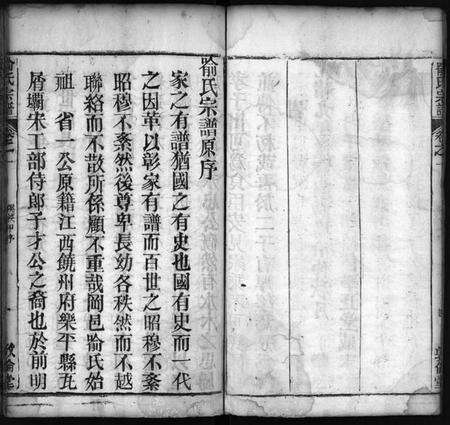 喻氏宗譜原序
家之有譜猶國之有史也國有史而一代
之因革以彰家有譜而百世之昭穆不紊
昭穆不紊然後尊卑長幼各秩然而不越
聯絡而不散所係顧不重哉簡邑喻氏始
祖 省一公原籍江西饒州府樂平縣瓦
屑壩宋工部侍郎子才公之裔也於前明
喻氏宗譜
卷之一
敦倫堂